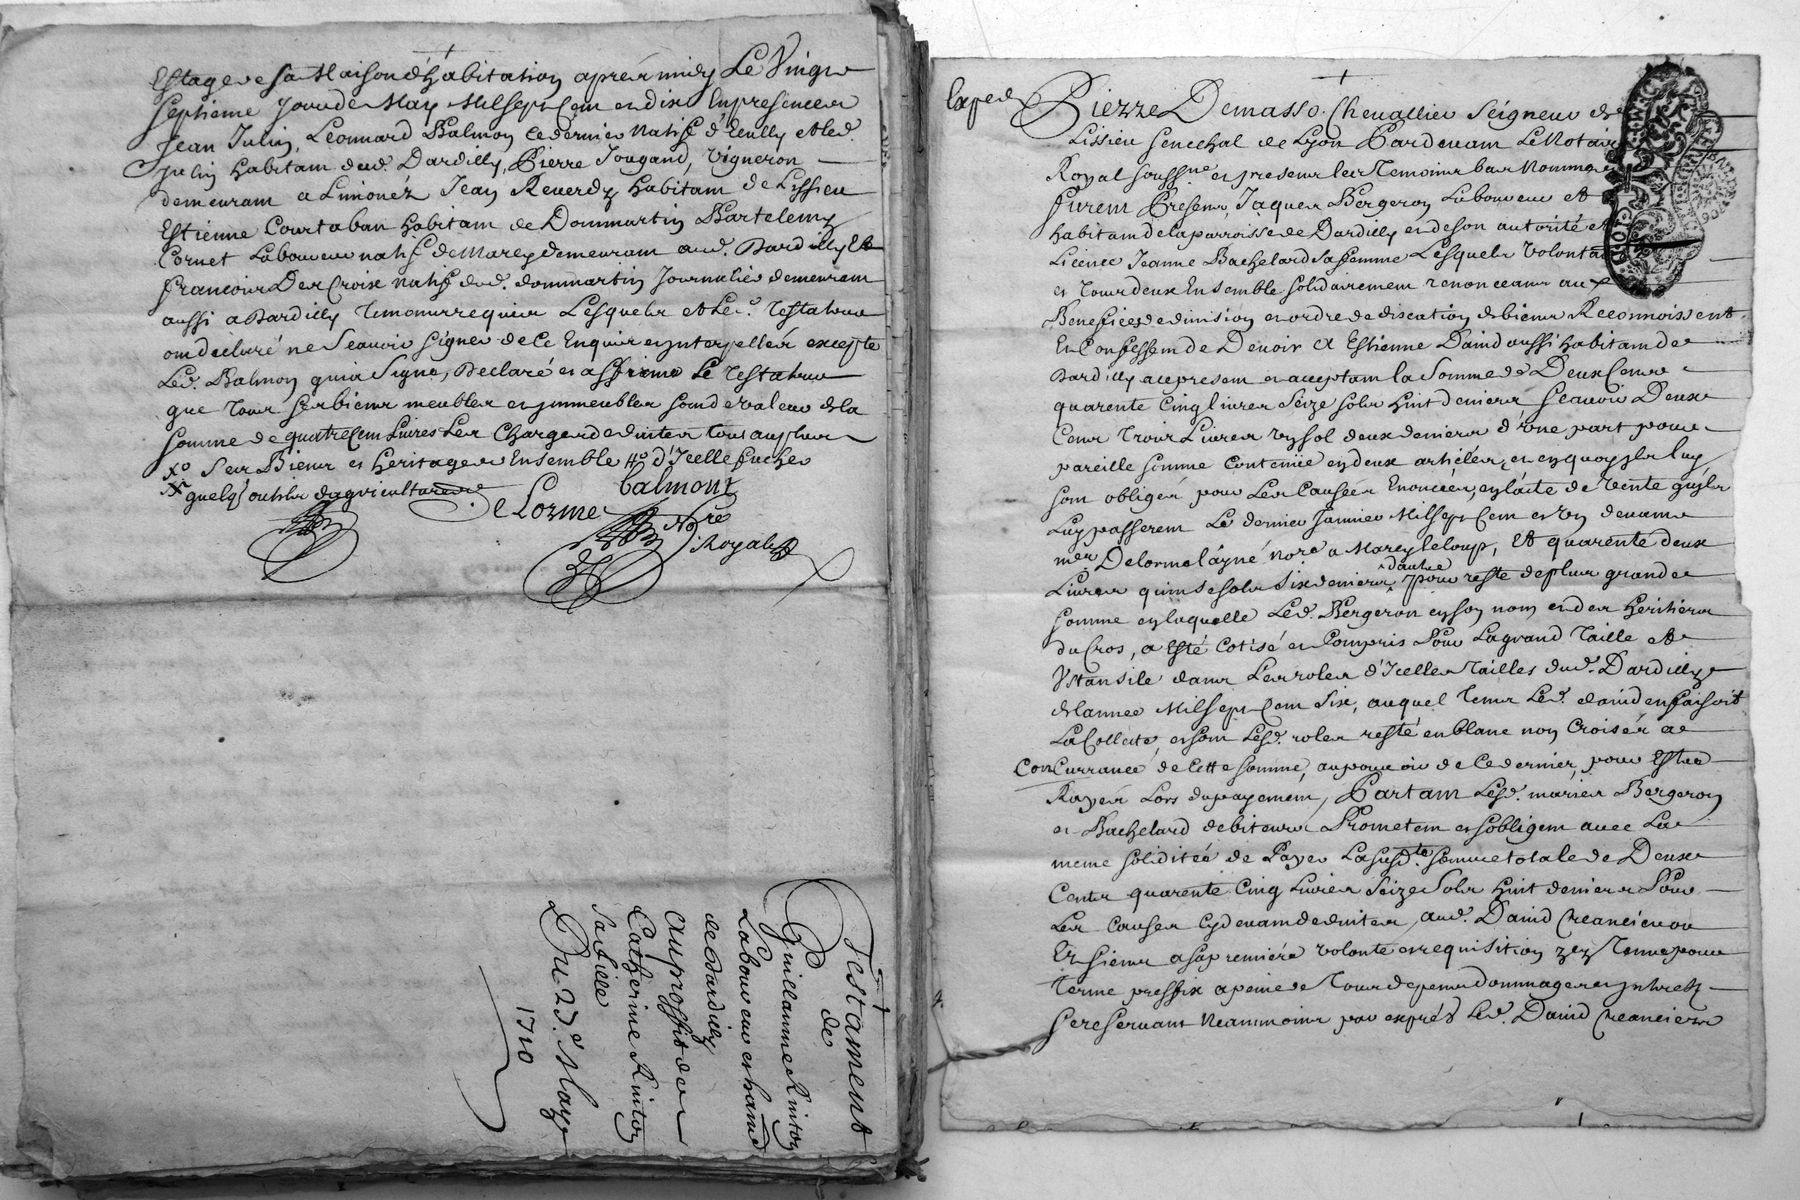 Estage de sa Maison d'habitation après midy Le Vingt
septieme Jour de May Mil sept Cent et dix En presence de
Jean Julin, Léonnard Balmon ce dernier natif d' et led.
Julin habitant dud. Dardilly, Pierre Jougand, Vigneron
demeurant a Limonéz Jean Reverdy habitant de Lissieu
Estienne Courtaban habitant de Dommartin Bartelemy
Cornet Laboureur natif de Marcy demeurant aud. Dardilly Et
françois DesCroix natif dud. dommartin Journalier demeurant
aussi a Dardilly Temoins requis Lesquels et Led. Testateur
ont declaré ne Scavoir signer de Ce Enquis et Interpellés excepté
Led. Balmon qui a Signé, Declaré et affirmé Le Testateur
que Tous ses biens meubles et immeubles sont de valeur de la
somme de quatre Cent Livres Les Charges deduites tout au plus
Xo Ses Biens et heritages Ensemble d'Icelle
XX quelq' outils d'agriculture
balmont
De Lorme
No.re
Royal
Testament
de
Guillaume Rinitoy
Laboureur et habitant
de Dardilly
au proffit de
Catherine Rinitoy
sa fille
Du 27.e May
1710
Exped.
Pierre Demasso Chevallier Seigneur de
Lissieu senechal de Lyon Pardevant Le Notaire
Royal soussné et presens les Temoins bas Nommés
furent Presens, Jaques Bergeron Laboureur et
habitant de la parroisse de Dardilly et de son autorité et
Licence Jeanne Bachelard Sa femme Lesquels Volontai
et Tous deux Ensemble solidairement renonceant aux
Benefices de division et ordre de discution de biens Reconnoissent
Et Confessent de Devoir A Estienne David aussi habitant de
Dardilly acepresent et acceptant la Somme de Deux Cents
quarente Cinq livres Seize sols huit deniers scavoir Deux
Cents Trois Livres un sol deux deniers d'une part pour
pareille somme Contenüe en deux articles, et en quoy ils luy
sont obligés pour Les Causes Enoncées, en l'acte de vente qu'ils
Luy passerent Le dernier Janvier Mil sept Cent et un devant
me. Delorme l'ayné no.re a Marcy le loup, Et quarente deux
Livres quinse sols six deniers d'autre pour reste de plus grande
somme en laquelle Led. Bergeron en son nom et des heritiers
du Cros, a Esté Cotisé et Compris Pour La grand Taille et
Vstansile dans Les roles d'Icelles Tailles dud. Dardilly
de l'année Mil sept Cent Six, auquel Tems Led. david en faisoit
La Collecte, et sont Lesd. roles resté en blanc non Croisés a
Concurrance de Cette somme, au pouvoir de Ce dernier, pour Estre
Rayés Lors du payement, Partant Lesd. mariés Bergeron
et Bachelard debiteurs Prometent et s'obligent avec La
meme solidité de Payer Lasusd.te somme totale de Deux
Cents quarente Cinq Livres Seize Sols huit deniers Pour
Les Causes Cydevant deduites, aud. David Creancier ou
Es siens a sa premiére volonte et requisition Tems pour
Terme preffix a peine de Tous depens dommages et intherets
se reservant Neammoins par exprés Led. David Creancier